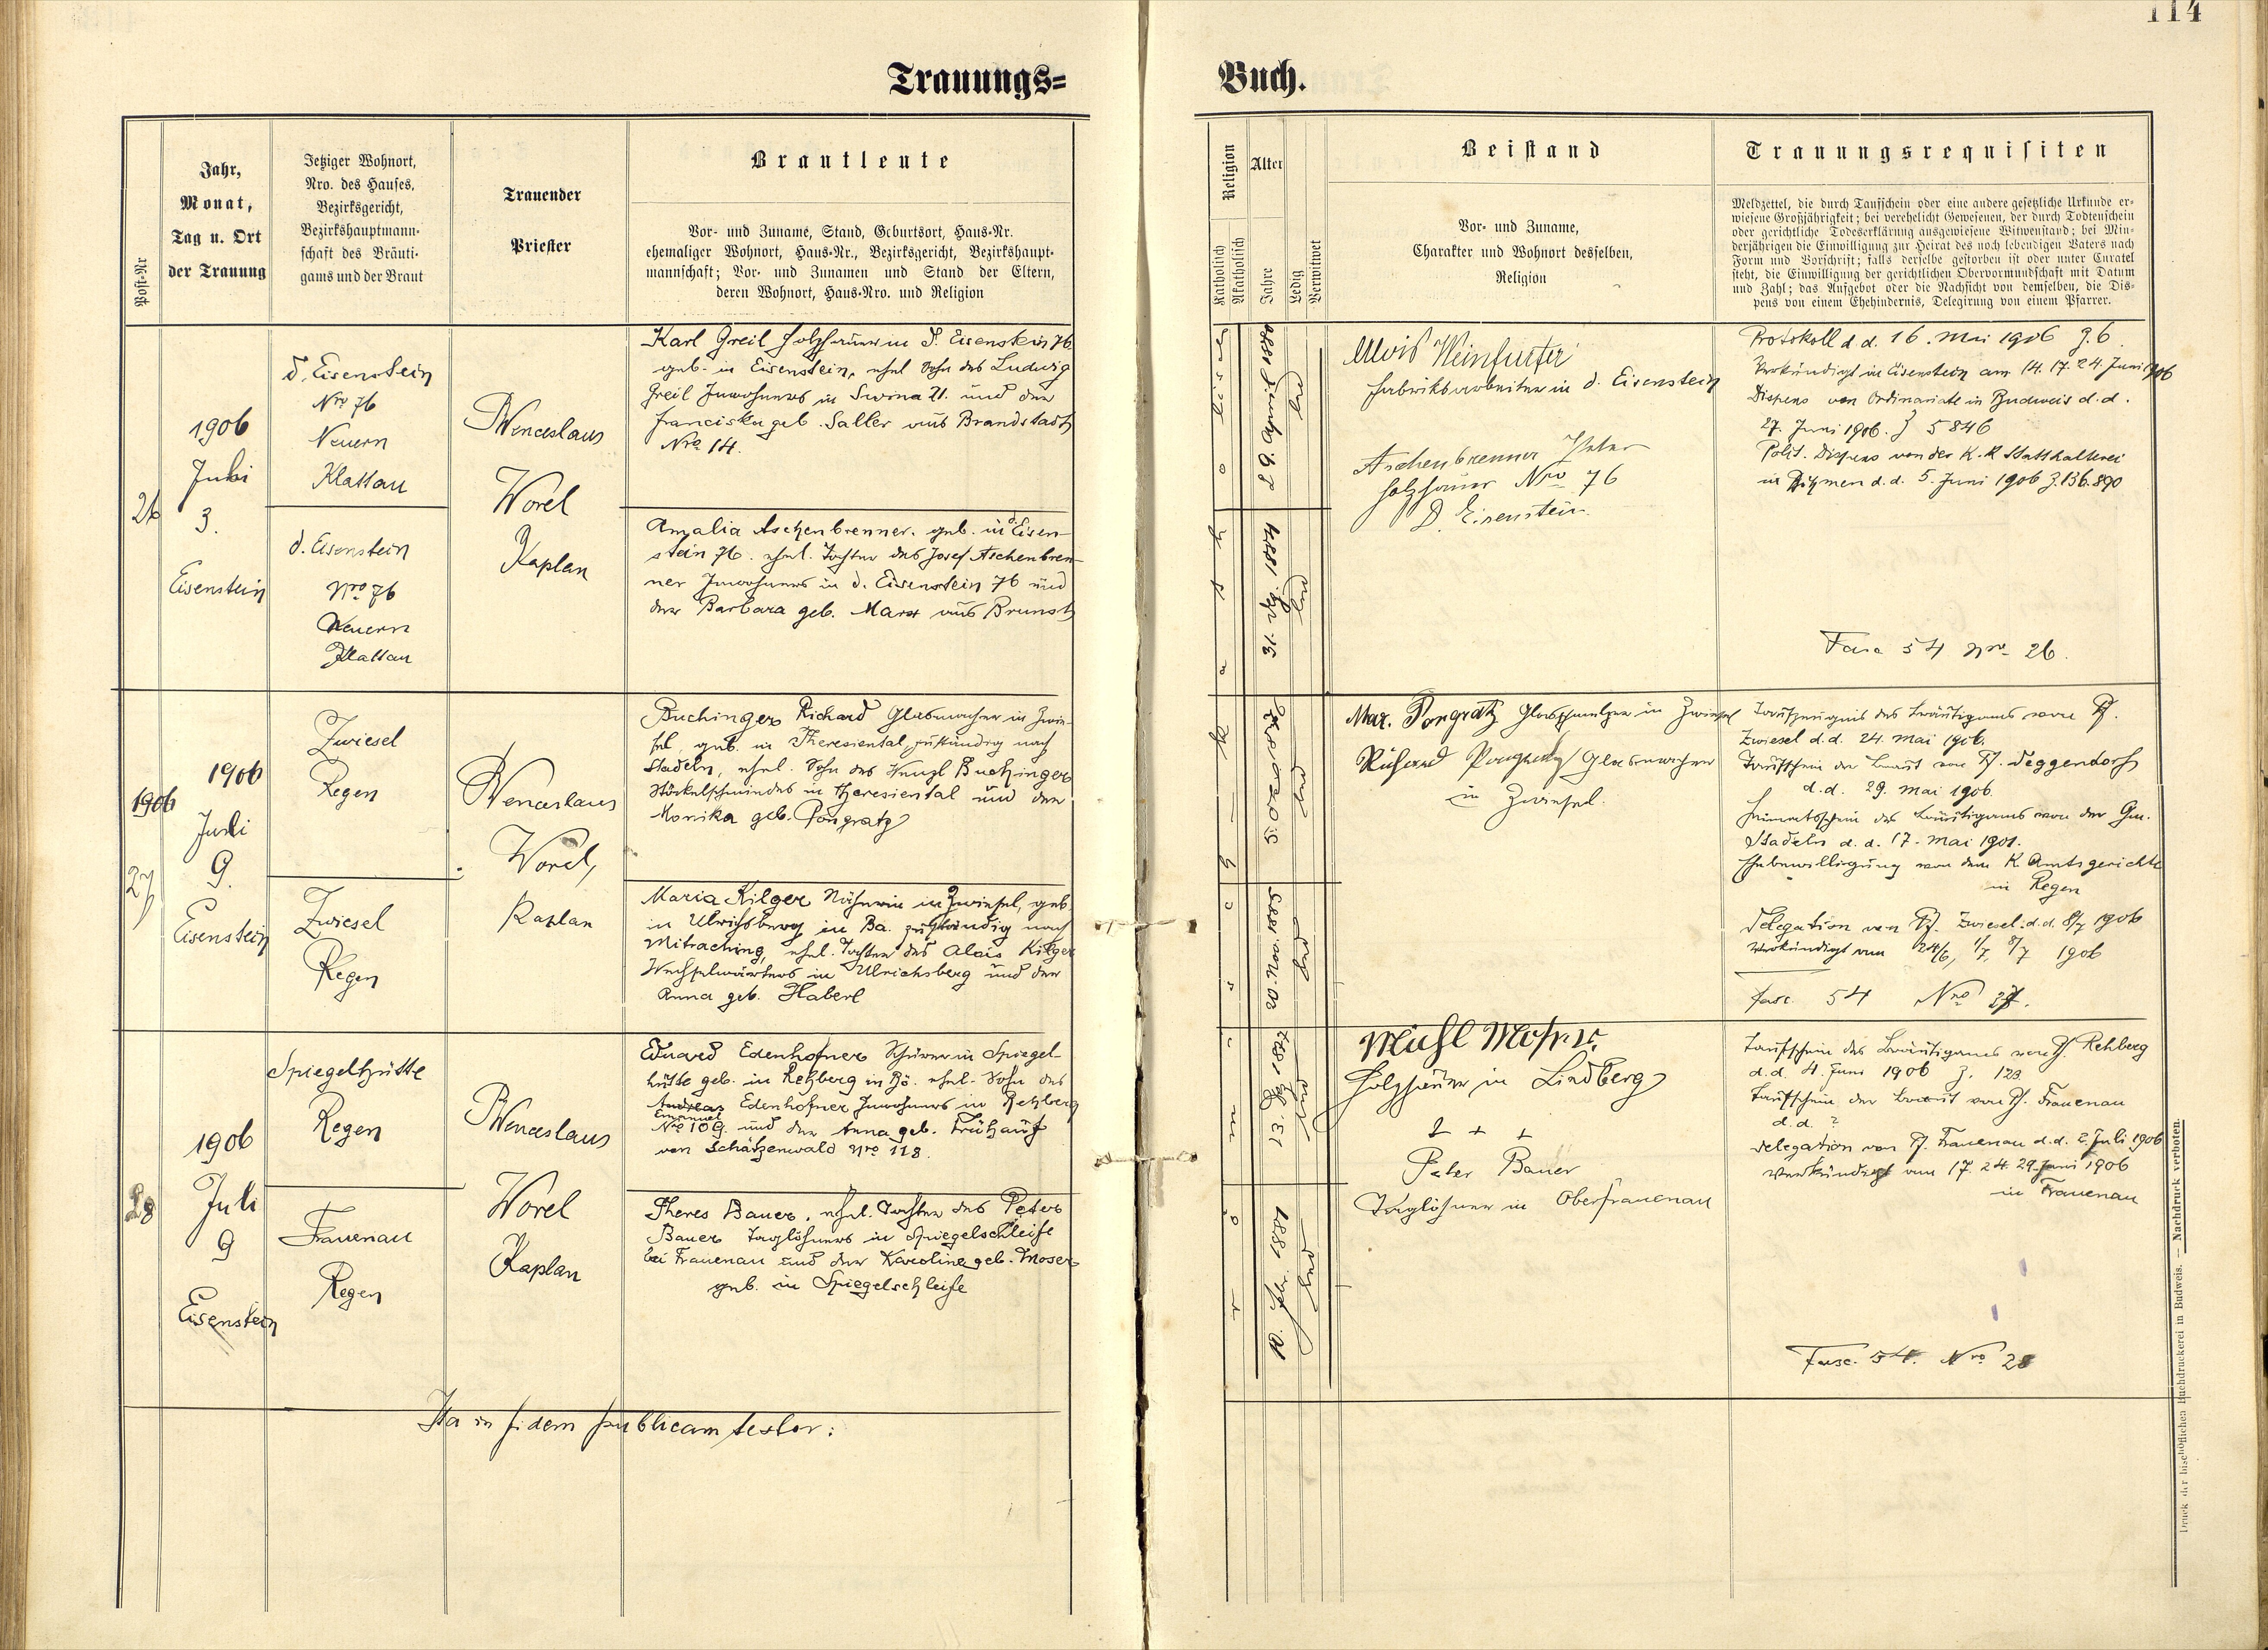 114
Trauungs=
Buch.
Post-Nr
Jahr,
Monat,
Tag u. Ort
der Trauung
Jetziger Wohnort,
Nro. des Hauses,
Bezirksgericht,
Bezirkshauptmann-
schaft des Bräuti-
gams und der Braut
Trauender
Priester
Brautleute
Vor- und Zuname, Stand, Geburtsort, Haus-Nr.
ehemaliger Wohnort, Haus-Nr., Bezirksgericht, Bezirkshaupt-
mannschaft; Vor- und Zunamen und Stand der Eltern,
deren Wohnort, Haus-Nro. und Religion
Religion
Katholisch
Akatholisch
Alter
Jahre
Ledig
Verwitwet
Beistand
Vor- und Zuname,
Charakter und Wohnort desselben,
Religion
Trauungsrequisiten
Meldzettel, die durch Taufschein oder eine andere gesetzliche Urkunde er-
wiesene Großjährigkeit; bei verehelicht Gewesenen, der durch Todtenschein
oder gerichtliche Todeserklärung ausgewiesene Witwenstand; bei Min-
derjährigen die Einwilligung zur Heirat des noch lebendigen Vaters nach
Form und Vorschrift; falls derselbe gestorben ist oder unter Curatel
steht, die Einwilligung der gerichtlichen Obervormundschaft mit Datum
und Zahl; das Aufgebot oder die Nachsicht von demselben, die Dis-
pens von einem Ehehindernis, Delegirung von einem Pfarrer.
26
1906
Juli
3.
Eisenstein
d. Eisenstein
Nro 76
Neuern
Klattau
d. Eisenstein
Nro 76
Neuern
Klattau
Wenceslaus
Worel
Kaplan
Karl Greil Holzhauer in d. Eisenstein 76
geb. in Eisenstein, ehel Sohn des Ludwig
Greil Inwohners in Swina 21. und der
Franciska geb. Saller aus Brandstadt
Nro 14.
Amalia Aschenbrenner. geb. in d. Eisen-
stein 76. ehel. Tochter des Josef Aschenbren-
ner Inwohners in d. Eisenstein 76 und
der Barbara geb. Marx aus Brunst
Alois Weinfurter
Fabriksarbeiter in d. Eisenstein
Aschenbrenner Peter
Holzhauer Nro 76
D. Eisenstein.
Protokoll d d. 16. Mai 1906 Z. 6.
Verkündigt in Eisenstein am 14. 17. 24. Juni 1906
Dispens von Ordinariate in Budweis d. d.
27. Juni 1906. Z 5846
Polit. Dispens von der K.K Statthalterei
in Böhmen d. d. 5. Juni 1906 Z. 136.890
Fasc 54 Nro 26.
1906
27
1906
Juli
9.
Eisenstein
Zwiesel
Regen
Zwiesel
Regen
Wenceslaus
Worel,
Kaplan
Buchinger Richard Glasmacher in Zwie-
sel, geb. in Theresiental, zuständig nach
Stadeln, ehel. Sohn des Wenzl Buchinger
in Theresiental und der
Monika geb. Pongratz
Maria Kilger Näherin in Zwiesel, geb.
in Ulrichsberg in Ba. zuständig nach
Mitraching, ehel. Tochter des Alois Kilger
Wechselwärters in Ulrichsberg und der
Anna geb. Haberl
20. Nov. 1883
Max. Pongratz Glasschmelzer in Zwiesel
Richard Pongratz Glasmacher
in Zwiesel.
Taufzeugnis des Bräutigams von Pf.
Zwiesel d. d. 24. Mai 1906.
Taufschein der Braut von Pf. Deggendorf
d. d. 29. Mai 1906.
Heimatsschein des Bräutigams von der Gm.
Stadeln d. d. 17. Mai 1901.
Ehebewilligung von dem K. Amtsgerichte
in Regen
Delegation von Pf. Zwiesel d. d. 8/7 1906
Verkündigt am 24/6, 1/7, 8/7 1906
Fasc. 54 Nro 27.
28
1906
Juli
9
Eisenstein
Spiegelhütte
Regen
Frauenau
Regen
Wenceslaus
Worel
Kaplan
Eduard Edenhofner Schürer in Spiegel-
hütte geb. in Rehberg in Bö. ehel. Sohn des
Andreas Edenhofner Inwohners in Rehberg
Emanuel
Nro 109. und der Anna geb. Frühauf
von Schätzenwald Nro 118.
Theres Bauer, ehel. Tochter des Peter
Bauer Taglöhners in Spiegelschleife
bei Frauenau und der Karoline geb. Moser
geb. in Spiegelschleife
Michl Moser
Holzhauer in Lindberg
+ + +
Peter Bauer
Taglöhner in Oberfrauenau
Taufschein des Bräutigams von Pf. Rehberg
d. d. 4. Juni 1906 Z. 123
Taufschein der Braut von Pf. Frauenau
d. d. ?
Delegation von Pf. Frauenau d. d. 2. Juli 1906
Verkündigt am 17. 24. 29. Juni 1906
in Frauenau
Fasc. 54. Nro 28
Ita in fidem publicam testor:
Druck der bischöflichen Buchdruckerei in Budweis. — Nachdruck verboten.